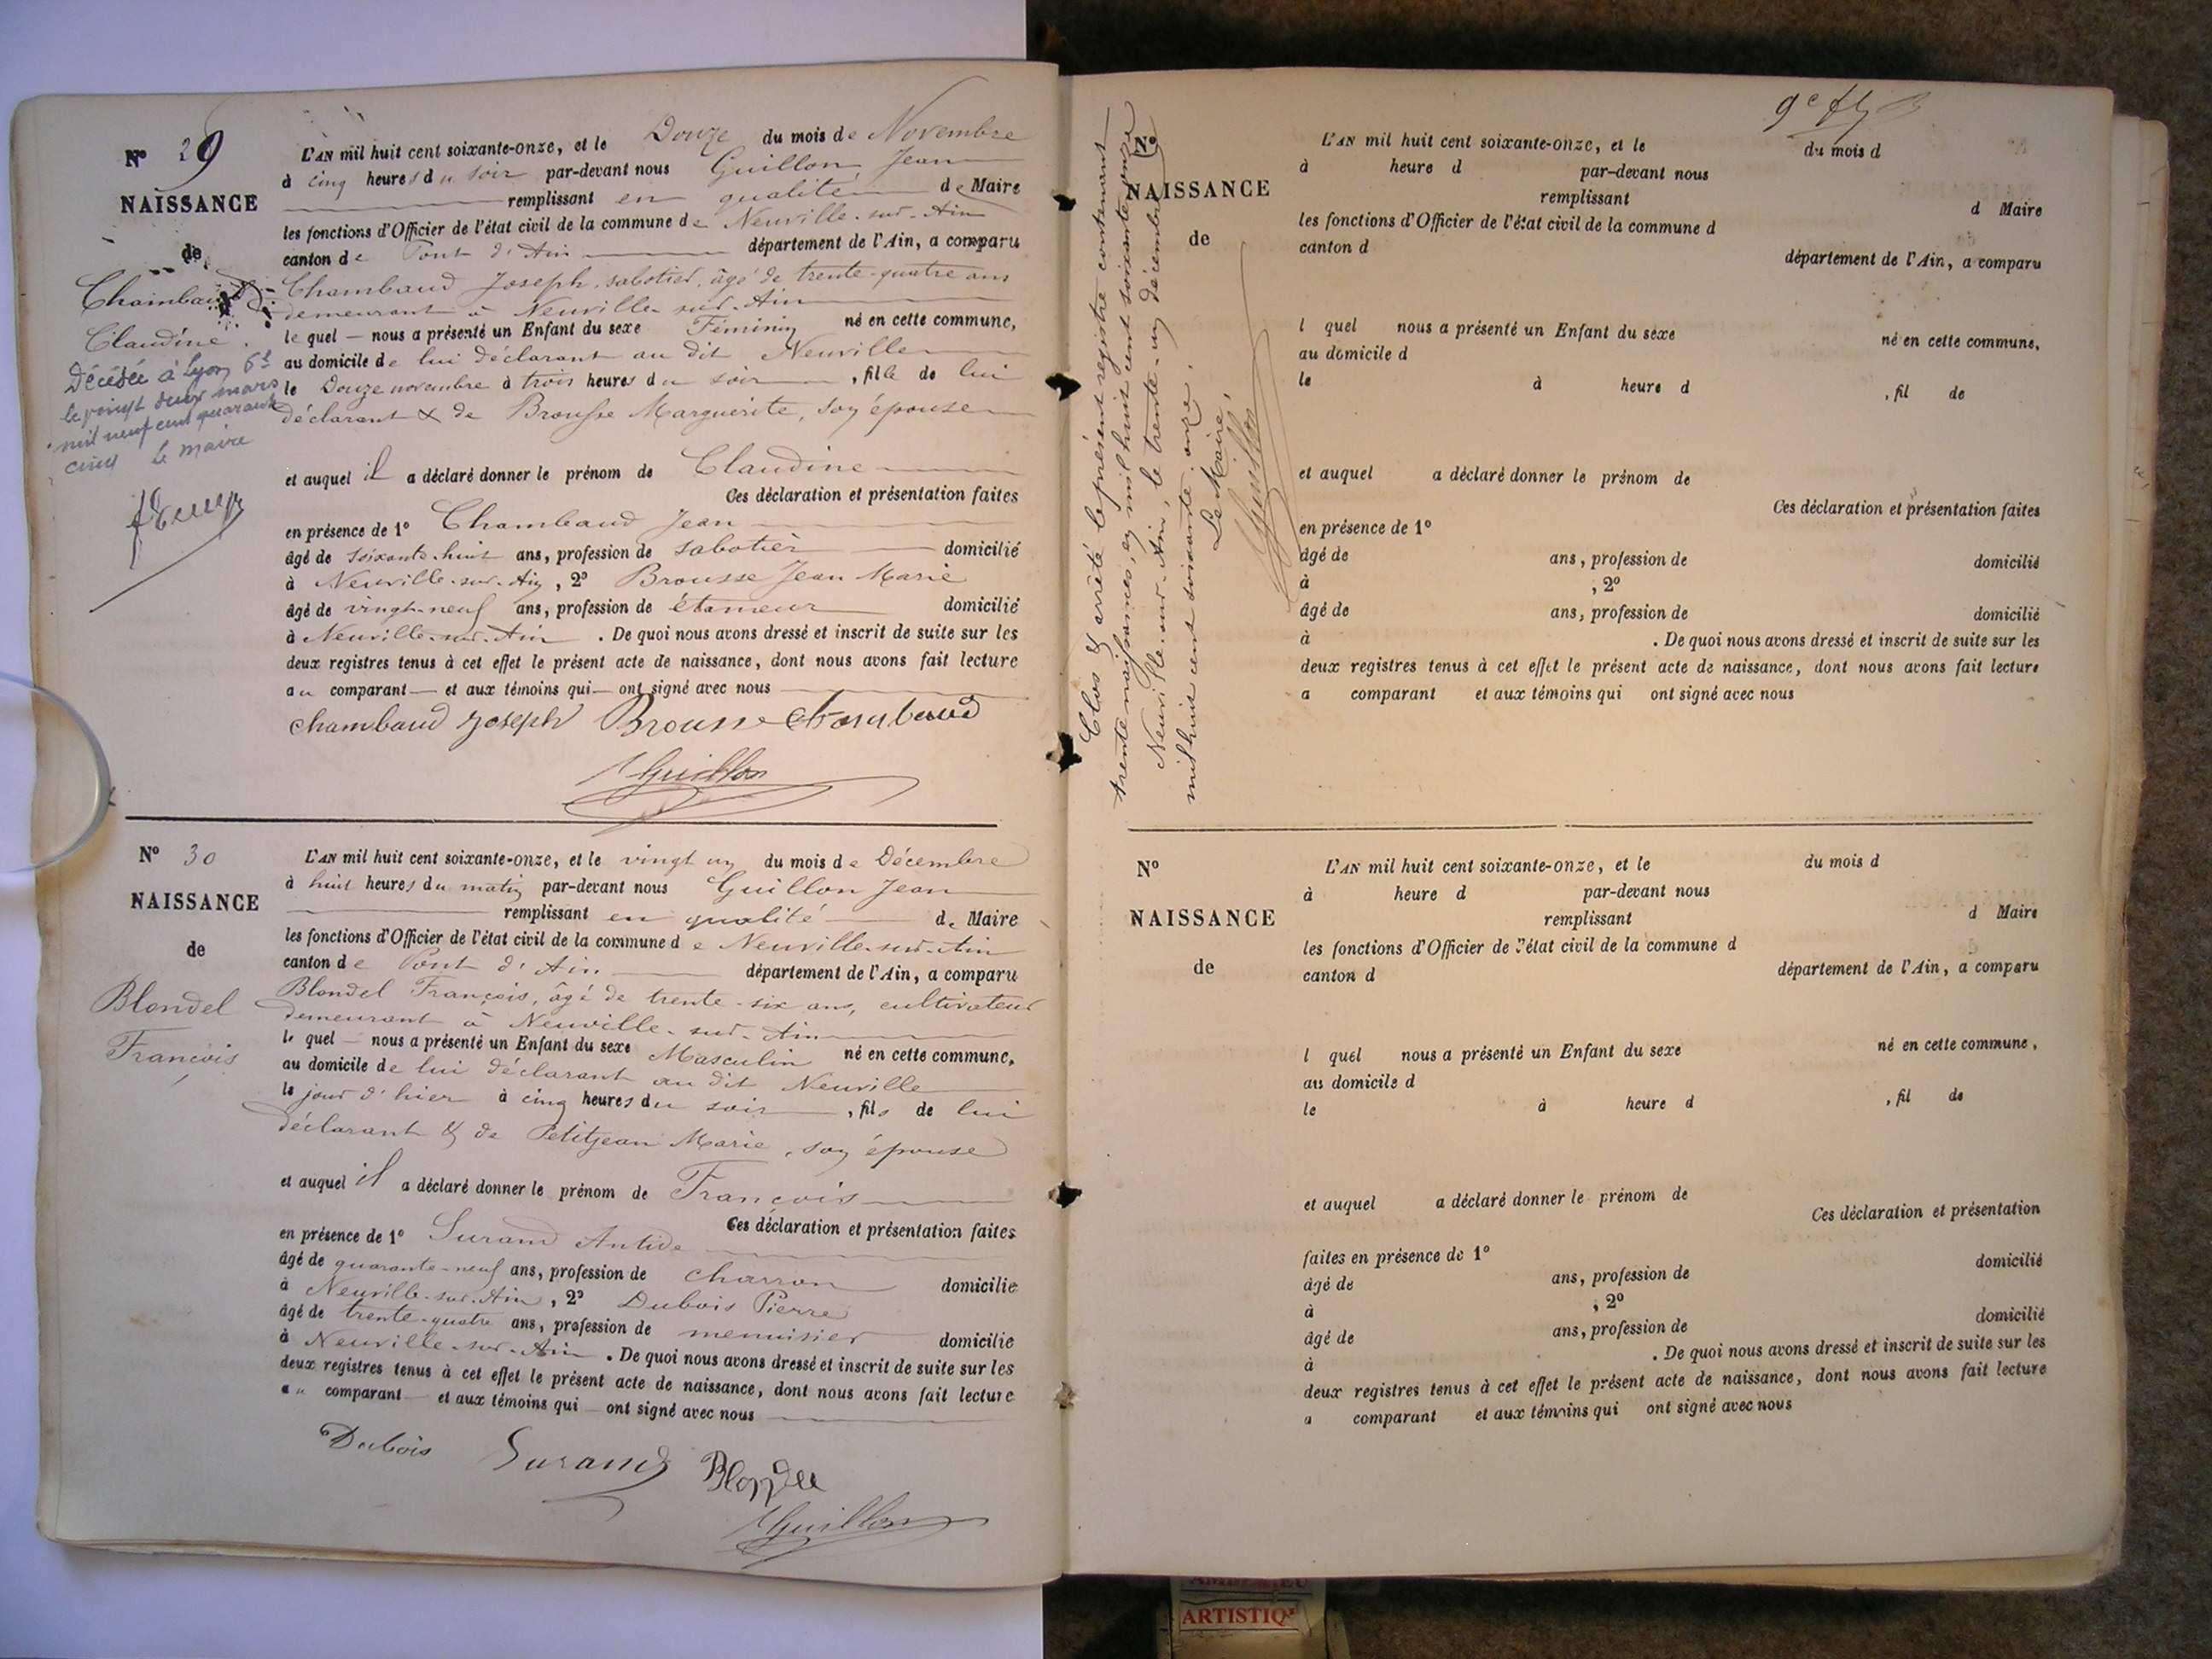 N° 29
NAISSANCE
de
Chambaud
Claudine.
Décédée à Lyon 6e
le vingt deux mars
mil neuf cent quarante
cinq le maire
L'AN mil huit cent soixante-onze, et le Douze du mois de Novembre
à cinq heures du soir par-devant nous Guillon Jean
remplissant en qualité de Maire
les fonctions d'Officier de l'état civil de la commune de Neuville-sur-Ain
canton de Pont d'Ain département de l'Ain, a comparu
Chambaud Joseph, sabotier, âgé de trente-quatre ans
demeurant à Neuville-sur-Ain
lequel nous a présenté un Enfant du sexe Féminin né en cette commune,
au domicile de lui déclarant au dit Neuville
le Douze novembre à trois heures du soir, fille de lui
déclarant & de Brousse Marguerite, son épouse
et auquel il a déclaré donner le prénom de Claudine
Ces déclaration et présentation faites
en présence de 1° Chambaud Jean
âgé de soixante-huit ans, profession de sabotier domicilié
à Neuville-sur-Ain, 2° Brousse Jean Marie
âgé de vingt-neuf ans, profession de étameur domicilié
à Neuville-sur-Ain. De quoi nous avons dressé et inscrit de suite sur les
deux registres tenus à cet effet le présent acte de naissance, dont nous avons fait lecture
au comparant et aux témoins qui ont signé avec nous
chambaud joseph Brousse Chambaud
Guillon
N° 30
NAISSANCE
de
Blondel
François
L'AN mil huit cent soixante-onze, et le vingt un du mois de Décembre
à huit heures du matin par-devant nous Guillon Jean
remplissant en qualité de Maire
les fonctions d'Officier de l'état civil de la commune de Neuville-sur-Ain
canton de Pont d'Ain département de l'Ain, a comparu
Blondel François, âgé de trente-six ans, cultivateur
demeurant à Neuville-sur-Ain
lequel nous a présenté un Enfant du sexe Masculin né en cette commune,
au domicile de lui déclarant au dit Neuville
le jour d'hier à cinq heures du soir, fils de lui
déclarant & de Petitjean Marie, son épouse
et auquel il a déclaré donner le prénom de François
Ces déclaration et présentation faites
en présence de 1° Surand Antide
âgé de quarante-neuf ans, profession de charron domicilié
à Neuville-sur-Ain, 2° Dubois Pierre
âgé de trente-quatre ans, profession de menuisier domicilié
à Neuville-sur-Ain. De quoi nous avons dressé et inscrit de suite sur les
deux registres tenus à cet effet le présent acte de naissance, dont nous avons fait lecture
au comparant et aux témoins qui ont signé avec nous
Dubois Surand Blondel
Guillon
Clos & arrêté le présent registre contenant
trente naissances, en mil huit cent soixante onze
Neuville-sur-Ain, le trente-un décembre
mil huit cent soixante onze.
Le Maire,
Guillon
N°
NAISSANCE
de
L'AN mil huit cent soixante-onze, et le du mois d
à heure d par-devant nous
remplissant d Maire
les fonctions d'Officier de l'état civil de la commune d
canton d département de l'Ain, a comparu
l quel nous a présenté un Enfant du sexe né en cette commune,
au domicile d
le à heure d , fil de
et auquel a déclaré donner le prénom de
Ces déclaration et présentation faites
en présence de 1°
âgé de ans, profession de domicilié
à , 2°
âgé de ans, profession de domicilié
à . De quoi nous avons dressé et inscrit de suite sur les
deux registres tenus à cet effet le présent acte de naissance, dont nous avons fait lecture
a comparant et aux témoins qui ont signé avec nous
N°
NAISSANCE
de
L'AN mil huit cent soixante-onze, et le du mois d
à heure d par-devant nous
remplissant d Maire
les fonctions d'Officier de l'état civil de la commune d
canton d département de l'Ain, a comparu
l quel nous a présenté un Enfant du sexe né en cette commune,
au domicile d
le à heure d , fil de
et auquel a déclaré donner le prénom de
Ces déclaration et présentation
faites en présence de 1°
âgé de ans, profession de domicilié
à , 2°
âgé de ans, profession de domicilié
à . De quoi nous avons dressé et inscrit de suite sur les
deux registres tenus à cet effet le présent acte de naissance, dont nous avons fait lecture
a comparant et aux témoins qui ont signé avec nous
ARTISTIQ